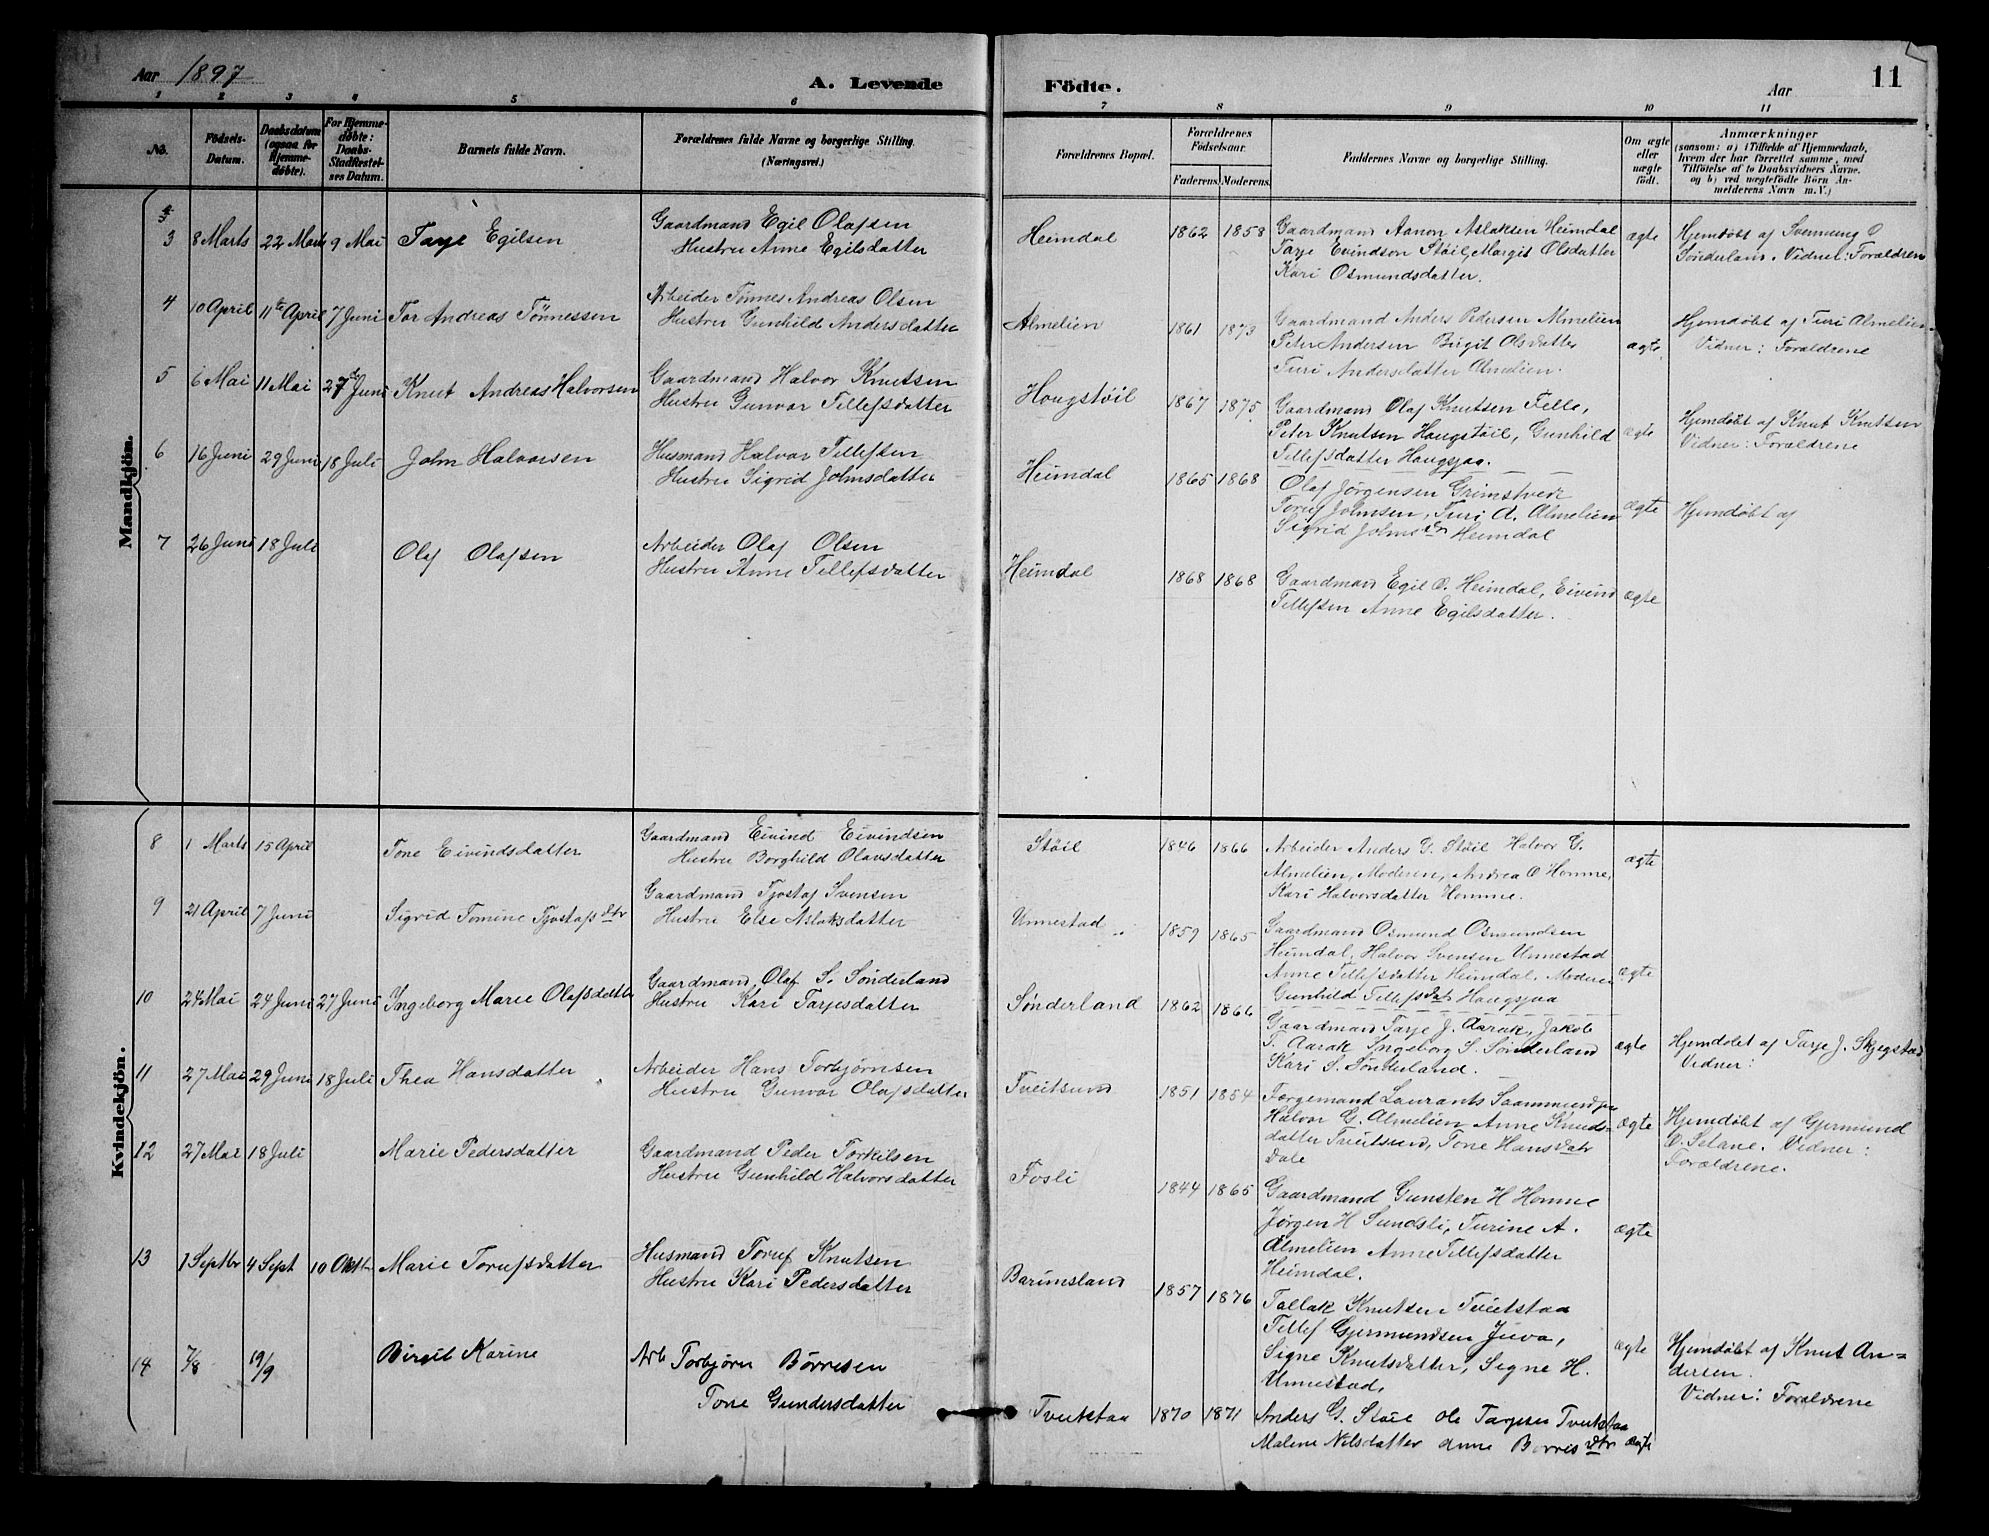 Aar 1897
A. Levende
Födte.
Aar
11
1 2 3 4 5 6 7 8 9 10 11
No.
Födsels-
Datum.
Daabsdatum
(ogsaa for
Hjemme-
döbte).
For Hjemme-
döbte:
Daabs-
Stadfæstel-
ses Datum.
Barnets fulde Navn.
Forældrenes fulde Navne og borgerlige Stilling.
(Næringsvei.)
Forældrenes Bopæl.
Forældrenes
Födselsaar.
Faderens. Moderens.
Faddernes Navne og borgerlige Stilling.
Om ægte
eller
uægte
födt.
Anmærkninger
(saasom: a) i Tilfælde af Hjemmedaab,
hvem der har forrettet samme, med
Tilföielse af to Daabsvidners Navne.
og b) ved uægtefödte Börn An-
melderens Navn m.V.)
Mandkjön.
3 8 Marts 22 Marts 9 Mai Tarje Egilsen
Gaardmand Egil Olafsen
Hustru Anne Egilsdatter
Heimdal 1862 1858
Gaardmand Aanon Aslaksen Heimdal
Tarje Evindson Støil, Margit Olsdatter
Kari Osmundsdatter.
ægte
Hjemdøbt af Svennung O
Sønderland. Vidner: Forældrene
4 10 April 11te April 7 Juni Tor Andreas Tønnessen
Arbeider Tønnes Andreas Olsen
Hustru Gunhild Andersdatter
Almelien 1861 1873
Gaardmand Anders Pedersen Almelien
Peter Andersen Birgit Olsdatter
Turi Andersdatter Almelien.
ægte
Hjemdøbt af Turi Almelien
Vidner: Forældrene
5 6 Mai 11 Mai 27de Juni Knut Andreas Halvorsen
Gaardmand Halvor Knutsen
Hustru Gunvor Tellefsdatter
Hougstøil 1867 1875
Gaardmand Olaf Knutsen Felle,
Peter Knutsen Haugstøil, Gunhild
Tellefsdatter Haugsjaa.
ægte
Hjemdøbt af Knut Knutsen
Vidner: Forældrene
6 16 Juni 29 Juni 18 Juli John Halvorsen
Husmand Halvor Tellefsen
Hustru Sigrid Johnsdatter
Heimdal 1865 1868
Olaf Jørgensen Grimstvedt
Toruf Johnsen, Turi A. Almelien
Sigrid Johnsdtr Heimdal
ægte
Hjemdøbt af
7 26 Juni 18 Juli Olaf Olafsen
Arbeider Olaf Olsen
Hustru Anne Tellefsdatter
Heimdal 1868 1868
Gaardmand Egil O. Heimdal, Eivind
Tellefsen Anne Egilsdatter.
ægte
Kvindekjön.
8 1 Marts 15 April Tone Eivindsdatter
Gaardmand Eivind Eivindsen
Hustru Borghild Olavsdatter
Støil 1846 1866
Arbeider Anders G. Støil Halvor G.
Almelien, Moderen, Andrea O Homme,
Kari Halvorsdatter Homme.
ægte
9 21 April 7 Juni Sigrid Tomine Tjostafsdtr
Gaardmand Tjostaf Svensen
Hustru Else Aslaksdatter
Unnestad 1859 1865
Gaardmand Osmund Osmundsen
Heimdal, Halvor Svensen Unnestad
Anne Tellefsdatter Heimdal. Moderen
Gunhild Tellefsdatr Haugsjaa
ægte
10 24 Mai 24 Juni 27 Juni Ingeborg Marie Olafsdatter
Gaardmand Olaf S. Sønderland
Hustru Kari Tarjesdatter
Sønderland 1862 1866
Gaardmand Tarje J. Aarak, Jakob
T. Aarak Ingeborg S. Sønderland
Kari S. Sønderland.
ægte
Hjemdøbt af Tarje J. Skjegstad
Vidner:
11 27 Mai 29 Juni 18 Juli Thea Hansdatter
Arbeider Hans Torbjørnsen
Hustru Gunvor Olafsdatter
Tveitsund 1851 1854
Forgemand Laurants
Halvor G. Almelien Anne Knuds-
datter Tveitsund, Tone Hansdatr
Dale
ægte
Hjemdøbt af Gjermund
O. Setane. Vidner:
Forældrene.
12 27 Mai 18 Juli Marie Pedersdatter
Gaardmand Peder Torkilsen
Hustru Gunhild Halvorsdatter
Fosli 1844 1865
Gaardmand Gunsten H Homme
Jørgen H Sundsli, Turine A.
Almelien Anne Tellefsdatter
Heimdal.
ægte
13 1 Septbr 4 Sept 10 Oktbr Marie Torufsdatter
Husmand Toruf Knutsen
Hustru Kari Pedersdatter
Barumsland 1857 1876
Tallak Knutsen Tveitstaa
Tellef Gjermundsen Juva,
Signe Knutsdatter, Signe H.
Unnestad,
ægte
Hjemdøbt af Knut An=
dersen.
Vidner: Forældrene
14 7/8 19/9 Birgit Karine
Arb Torbjørn Børresen
Tone Gundersdatter
Tveitstaa 1870 1871
Anders G. Støil Ole Tarjesen Tveitstaa
Malene Nilsdatter Anne Borresdtr ægte